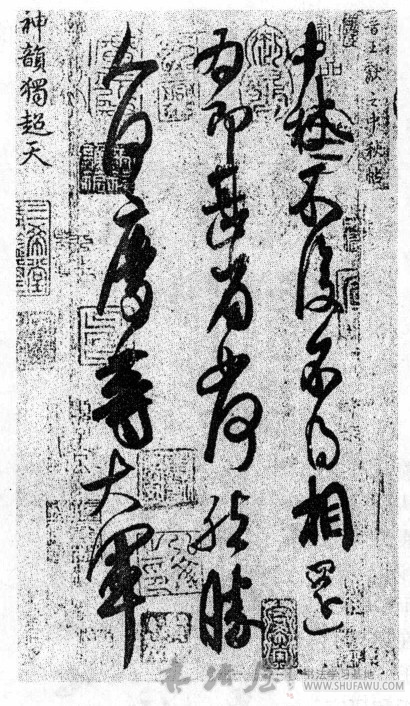 晉王獻之中秋帖
中秋不復不得相還
為即甚省如何然勝
人何慶等大軍
神韻獨超天
三希堂
書法屋
书法学习基地
WWW.SHUFAWU.COM